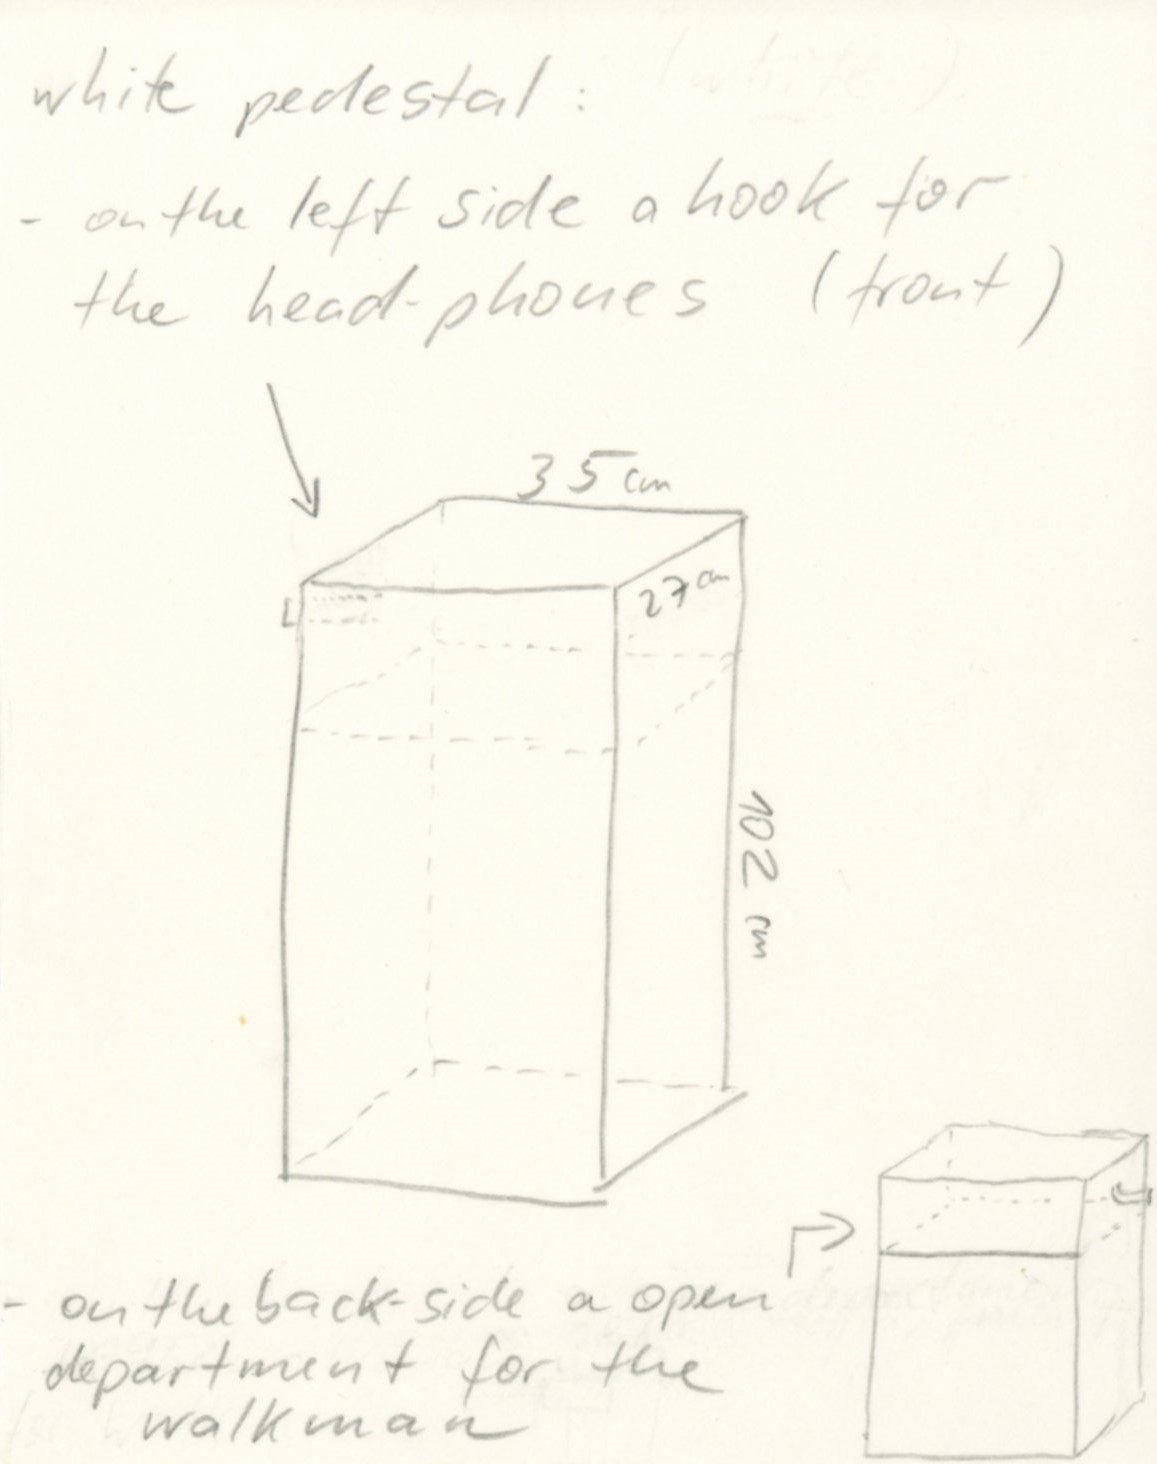 white pedestal :
- on the left side a hook for
the head-phones (front)
35 cm
27 cm
102 cm
- on the back-side a open
department for the
walkman